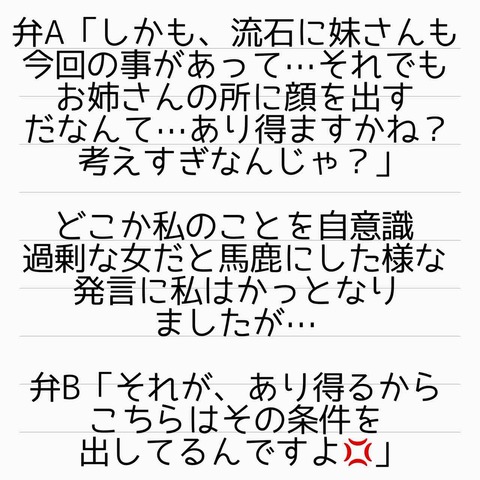 弁A「しかも、流石に妹さんも
今回の事があって…それでも
お姉さんの所に顔を出す
だなんて…あり得ますかね？
考えすぎなんじゃ？」
どこか私のことを自意識
過剰な女だと馬鹿にした様な
発言に私はかっとなり
ましたが…
弁B「それが、あり得るから
こちらはその条件を
出してるんですよ💢」